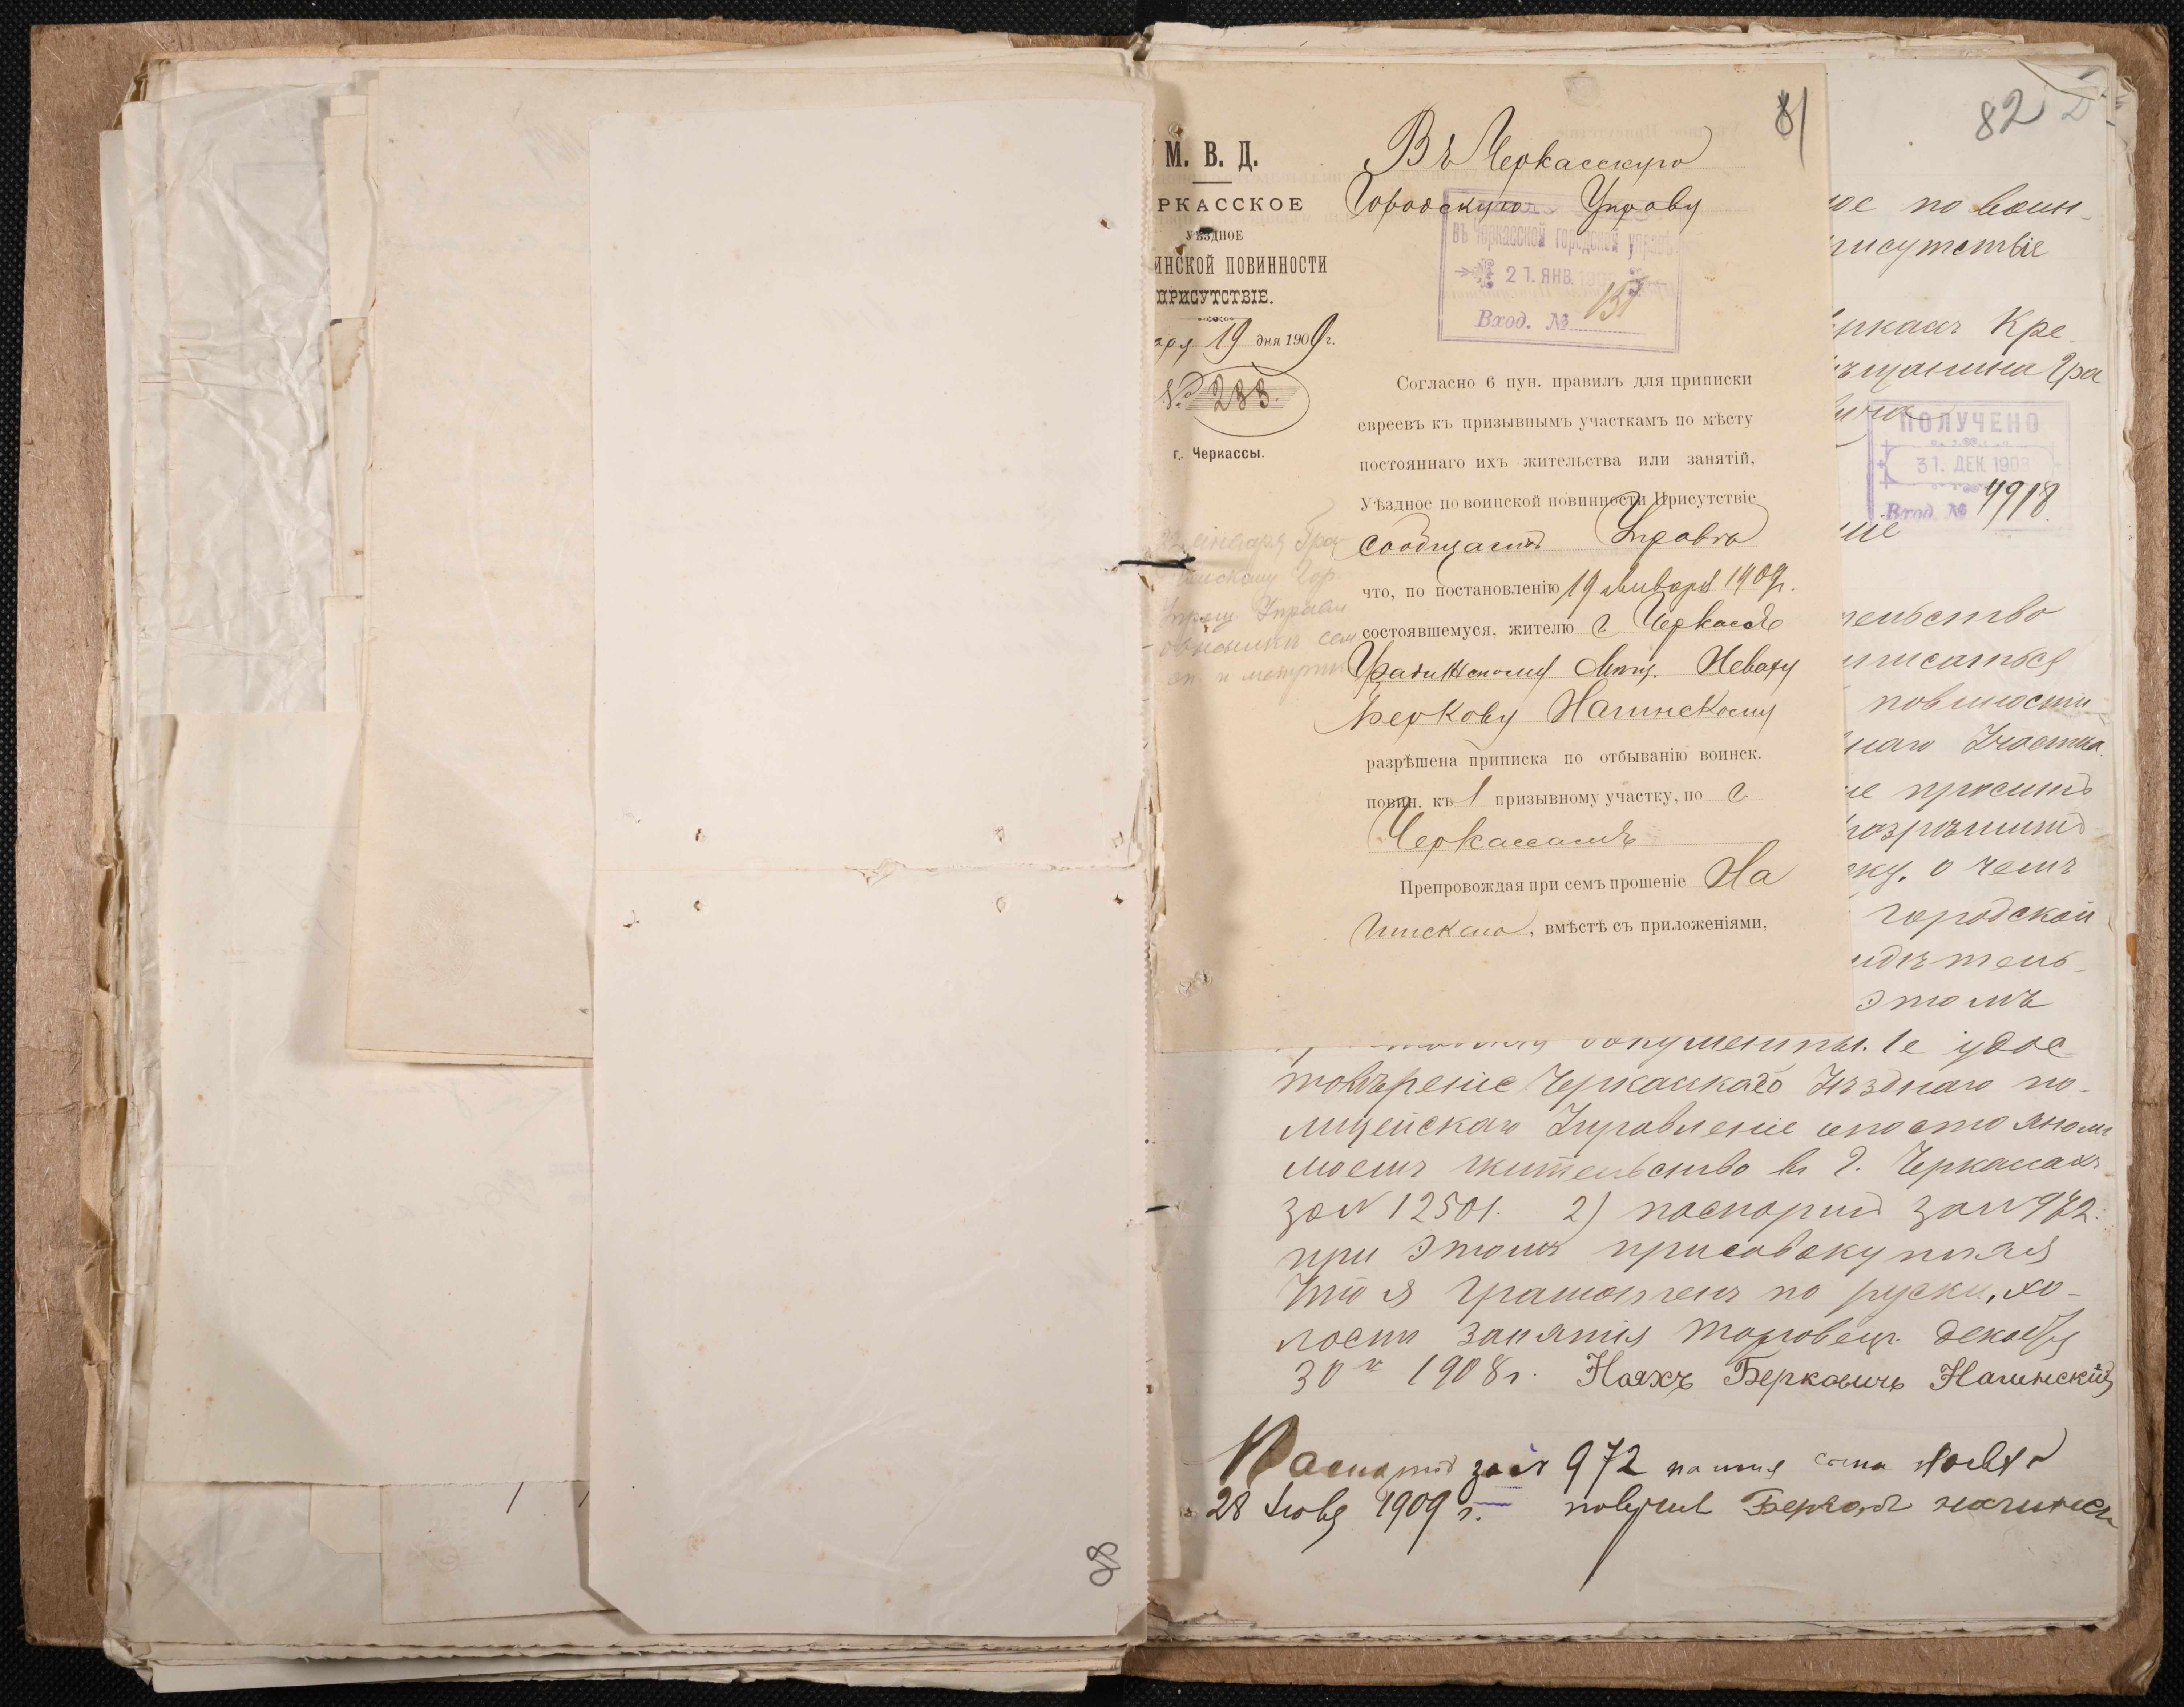 81
М. В. Д.
РКАССКОЕ
УѢЗДНОЕ
ИНСКОЙ ПОВИННОСТИ
ПРИСУТСТВІЕ.
аря 19 дня 1909 г.
№ 233.
г. Черкассы.
Въ Черкасскую
Городскую Управу
въ Черкасской городской управѣ
21. ЯНВ. 190
Вход. №
Согласно 6 пун. правилъ для приписки
евреевъ къ призывнымъ участкамъ по мѣсту
постояннаго ихъ жительства или занятій,
Уѣздное по воинской повинности Присутствіе
сообщаетъ Управѣ
что, по постановленію 19 января 1909 г.
состоявшемуся, жителю г. Черкассъ
Градижскому мѣщ. Неваху
Беркову Нагинскому
разрѣшена приписка по отбыванію воинск.
повин. къ 1 призывному участку, по г.
Черкассамъ
Препровождая при семъ прошеніе На
гинскаго, вмѣстѣ съ приложеніями,
22 января
82
ое по воин-
рисутствіе
Кре-
ѣщанина Гра
ПОЛУЧЕНО
31. ДЕК. 1908
Вход. № 4918
ніе
тельство
писаться
повиности
наго Участка.
іе просить
разрѣшить
ску, о чемъ
городской
идѣтель-
этомъ
документы. 1е удос-
товѣреніе Черкаскаго Уѣзднаго по-
лицейскаго Управленіе
моемъ жительство въ г. Черкасахъ
за № 12501. 2) паспортъ за № 972.
при этомъ присовокупляя
что я грамотенъ по руски, хо-
лостъ занятія торговецъ. Декабря
30 1908 г. Нояхъ Берковичъ Нагинскій
Паспортъ за № 972 на имя сына
28 1909 г. получил
80